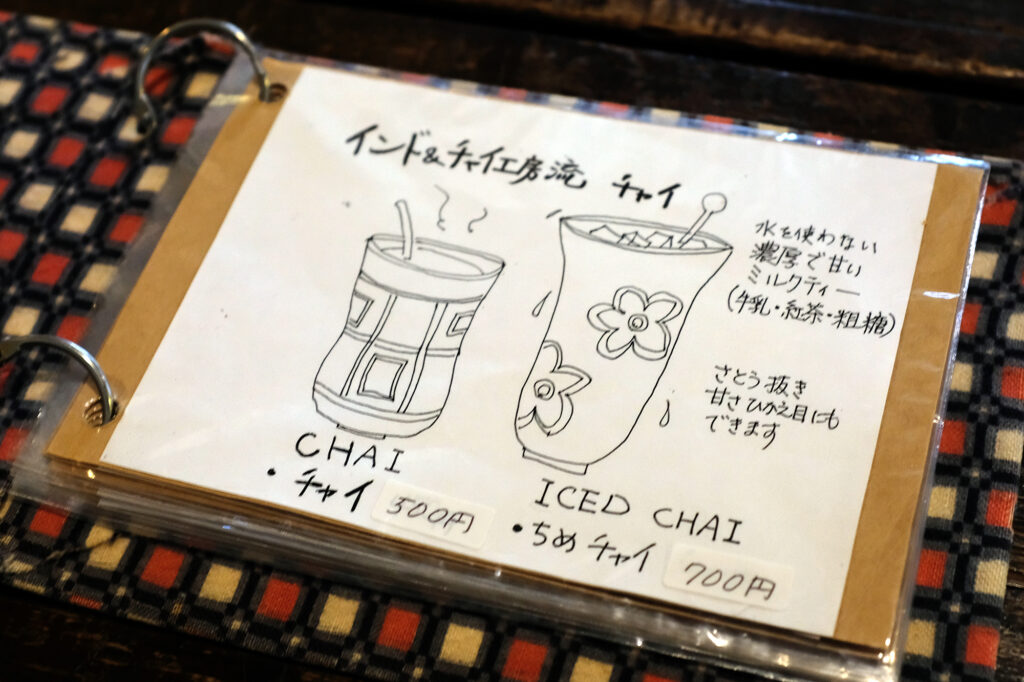 インド&チャイ工房流 チャイ
水を使わない
濃厚で甘い
ミルクティー
(牛乳・紅茶・粗糖)
さとう抜き
甘さひかえ目にも
できます
CHAI
・チャイ 500円
ICED CHAI
・ちめチャイ 700円